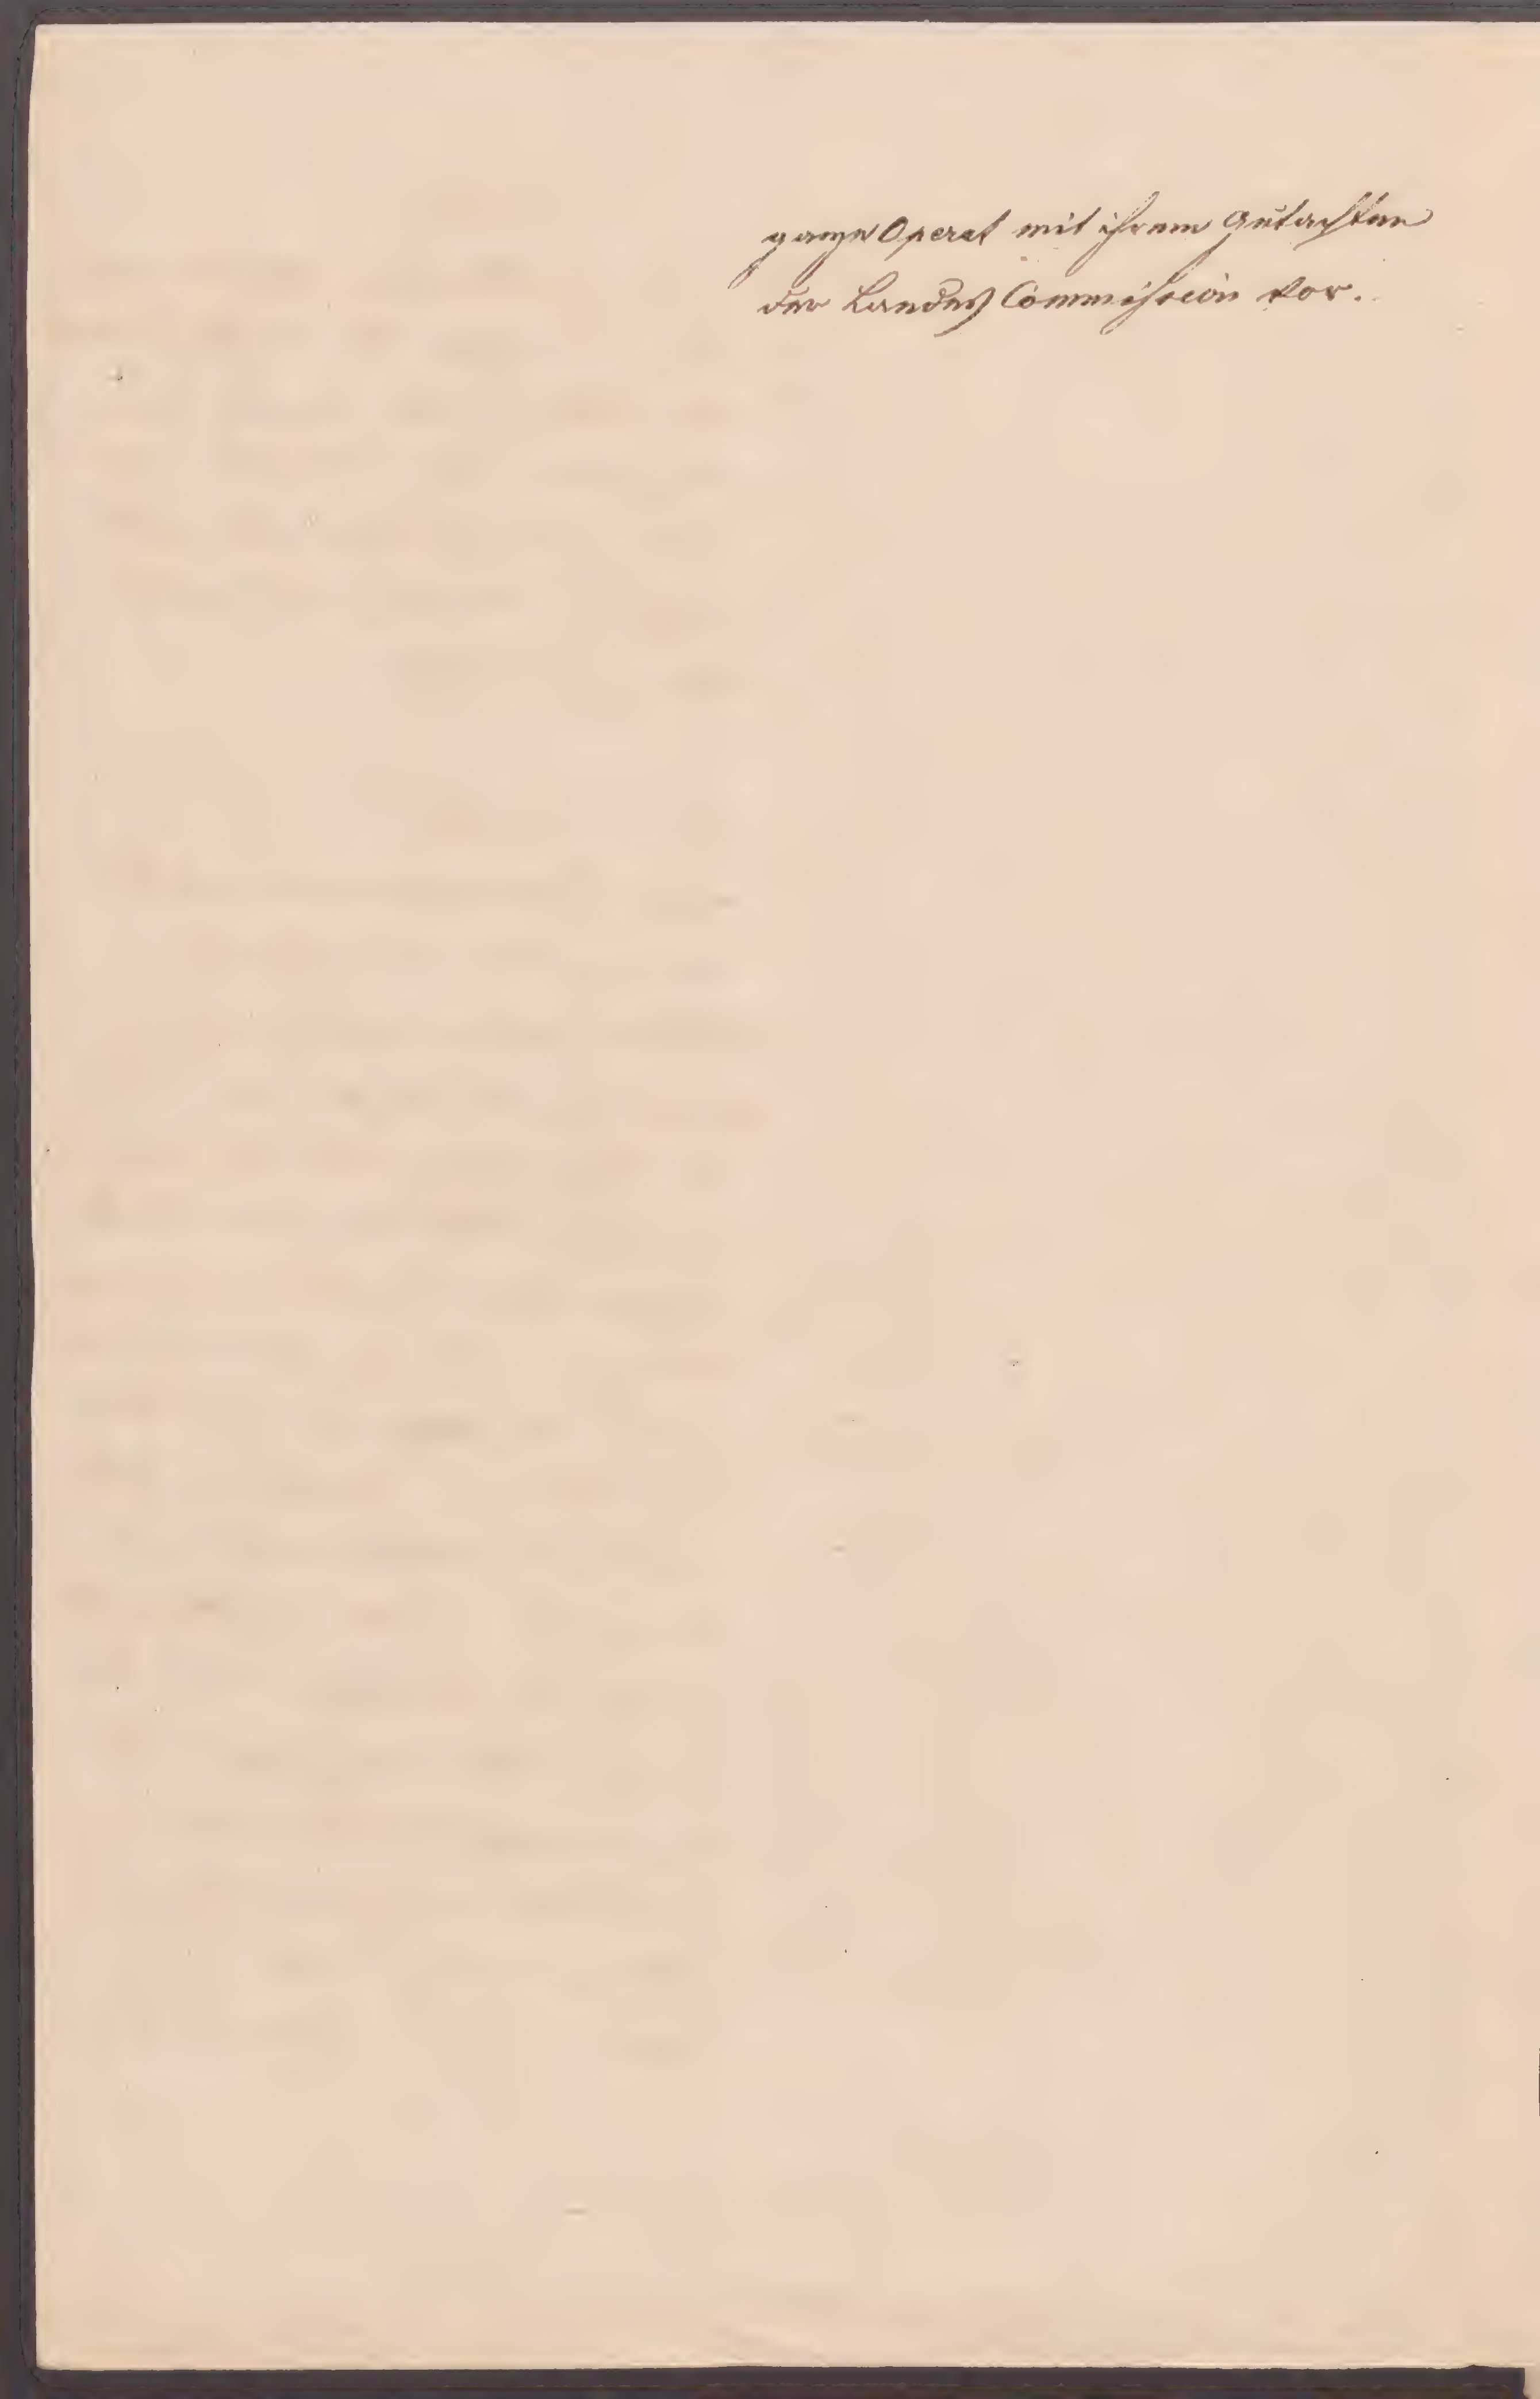 ganze Operat mit ihrem Gutachten
der Landes Commission vor.